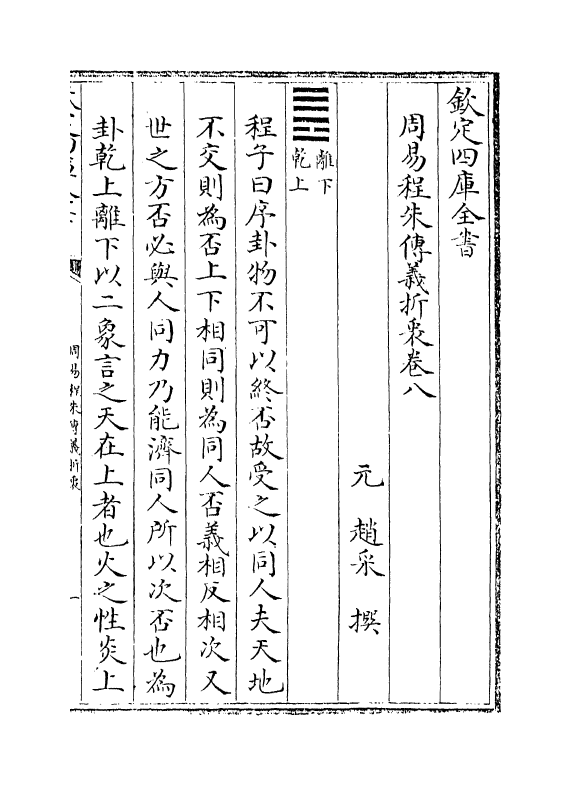 欽定四庫全書
周易程朱傳義折衷卷八
元 趙采 撰
離下
乾上
程子曰序卦物不可以終否故受之以同人夫天地
不交則為否上下相同則為同人否義相反相次又
世之方否必與人同力乃能濟同人所以次否也為
卦乾上離下以二象言之天在上者也火之性炎上
周易程朱傳義折衷
一